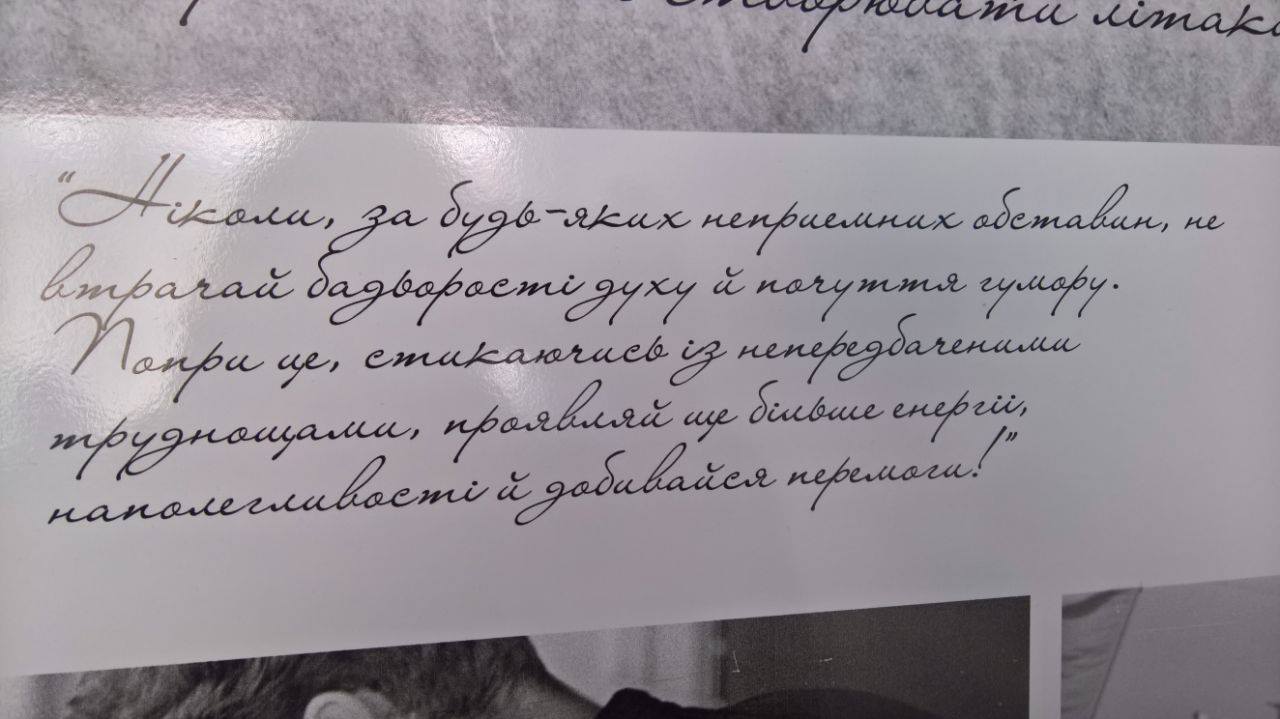 створювати літако
"Ніколи, за будь-яких неприемних обставин, не
втрачай бадьорості духу й почуття гумору.
Попри це, стикаючись із непередбаченими
труднощами, проявляй ще більше енергіі,
наполегливості й добивайся перемоги!"